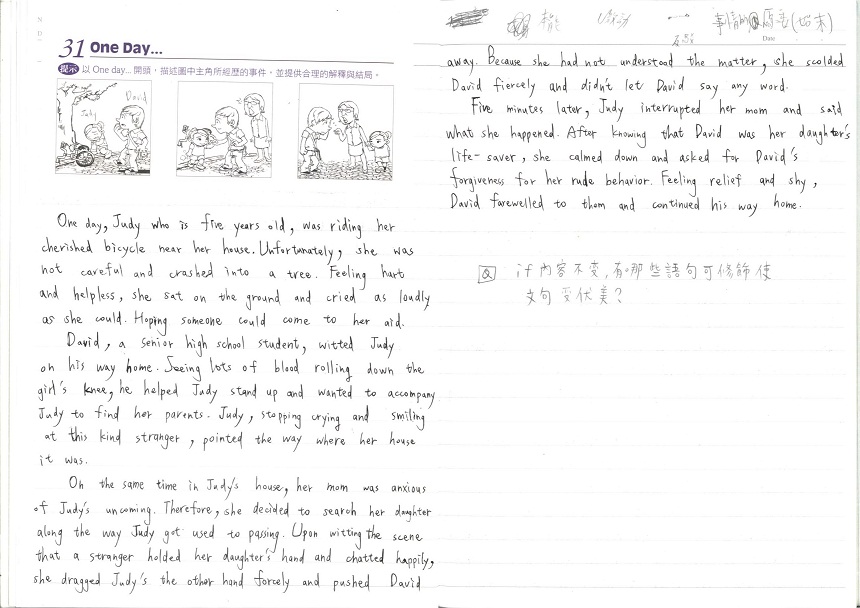 31 One Day...
提示 以 One day... 開頭，描述圖中主角所經歷的事件，並提供合理的解釋與結局。
David
Judy
One day, Judy who is five years old, was riding her
cherished bicycle near her house. Unfortunately, she was
not careful and crashed into a tree. Feeling hurt
and helpless, she sat on the ground and cried as loudly
as she could. Hoping someone could come to her aid.
David, a senior high school student, witted Judy
on his way home. Seeing lots of blood rolling down the
girl's knee, he helped Judy stand up and wanted to accompany
Judy to find her parents. Judy, stopping crying and smiling
at this kind stranger, pointed the way where her house
it was.
On the same time in Judy's house, her mom was anxious
of Judy's uncoming. Therefore, she decided to search her daughter
along the way Judy got used to passing. Upon witting the scene
that a stranger holded her daughter's hand and chatted happily,
she dragged Judy's the other hand forcely and pushed David
事情的原委(始末)
Date
away. Because she had not understood the matter, she scolded
David fiercely and didn't let David say any word.
Five minutes later, Judy interrupted her mom and said
what she happened. After knowing that David was her daughter's
life-saver, she calmed down and asked for David's
forgiveness for her rude behavior. Feeling relief and shy,
David farewelled to them and continued his way home.
Q if 內容不变, 有哪些語句可修飾使
文句变优美?